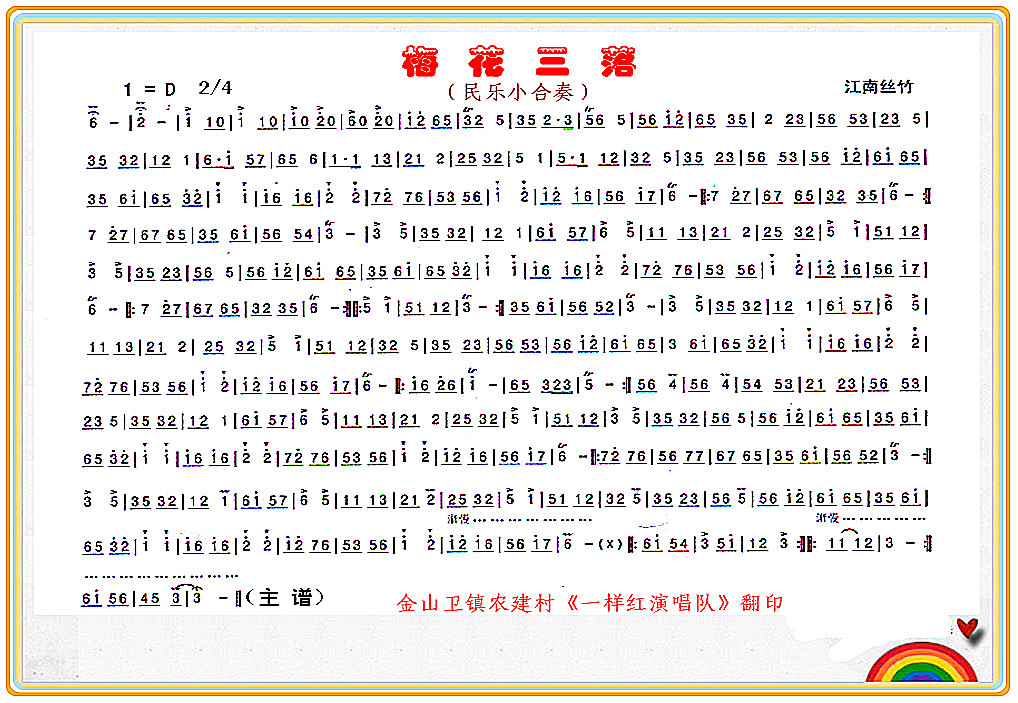 梅花三落
(民乐小合奏)
1 = D 2/4
江南丝竹
6 – | 2 – | 1 10 | 1 10 | 10 20 | 60 20 | 12 65 | 32 5 | 35 2·3 | 56 5 | 56 12 | 65 35 | 2 23 | 56 53 | 23 5 |
35 32 | 12 1 | 6·1 57 | 65 6 | 1·1 13 | 21 2 | 25 32 | 5 1 | 5·1 12 | 32 5 | 35 23 | 56 53 | 56 12 | 61 65 |
35 61 | 65 32 | 1 1 | 16 16 | 2 2 | 72 76 | 53 56 | 1 2 | 12 16 | 56 17 | 6 – |: 7 27 | 67 65 | 32 35 | 6 – :|
7 27 | 67 65 | 35 61 | 56 54 | 3 – | 3 5 | 35 32 | 12 1 | 61 57 | 6 5 | 11 13 | 21 2 | 25 32 | 5 1 | 51 12 |
3 5 | 35 23 | 56 5 | 56 12 | 61 65 | 35 61 | 65 32 | 1 1 | 16 16 | 2 2 | 72 76 | 53 56 | 1 2 | 12 16 | 56 17 |
6 – |: 7 27 | 67 65 | 32 35 | 6 – :||: 5 1 | 51 12 | 3 – :| 35 61 | 56 52 | 3 – | 3 5 | 35 32 | 12 1 | 61 57 | 6 5 |
11 13 | 21 2 | 25 32 | 5 1 | 51 12 | 32 5 | 35 23 | 56 53 | 56 53 | 56 12 | 61 65 | 3 61 | 65 32 | 1 1 | 16 16 | 2 2 |
72 76 | 53 56 | 1 2 | 12 16 | 56 17 | 6 – |: 16 26 | 1 – | 65 323 | 5 – :| 56 4 | 56 4 | 54 53 | 21 23 | 56 53 |
23 5 | 35 32 | 12 1 | 61 57 | 6 5 | 11 13 | 21 2 | 25 32 | 5 1 | 51 12 | 3 5 | 35 32 | 56 5 | 56 12 | 61 65 | 35 61 |
65 32 | 1 1 | 16 16 | 2 2 | 72 76 | 53 56 | 1 2 | 12 16 | 56 17 | 6 – |: 72 76 | 56 77 | 67 65 | 35 61 | 56 52 | 3 – :|
3 5 | 35 32 | 12 1 | 61 57 | 6 5 | 11 13 | 21 2 | 25 32 | 5 1 | 51 12 | 32 5 | 35 23 | 56 5 | 56 12 | 61 65 | 35 61 |
渐慢 渐慢
65 32 | 1 1 | 16 16 | 2 2 | 12 76 | 53 56 | 1 2 | 12 16 | 56 17 | 6 – (X) |: 61 54 | 3 51 | 12 3 :||: 11 12 | 3 – :|
61 56 | 45 3 | 3 – ‖ (主谱)
金山卫镇农建村《一样红演唱队》翻印